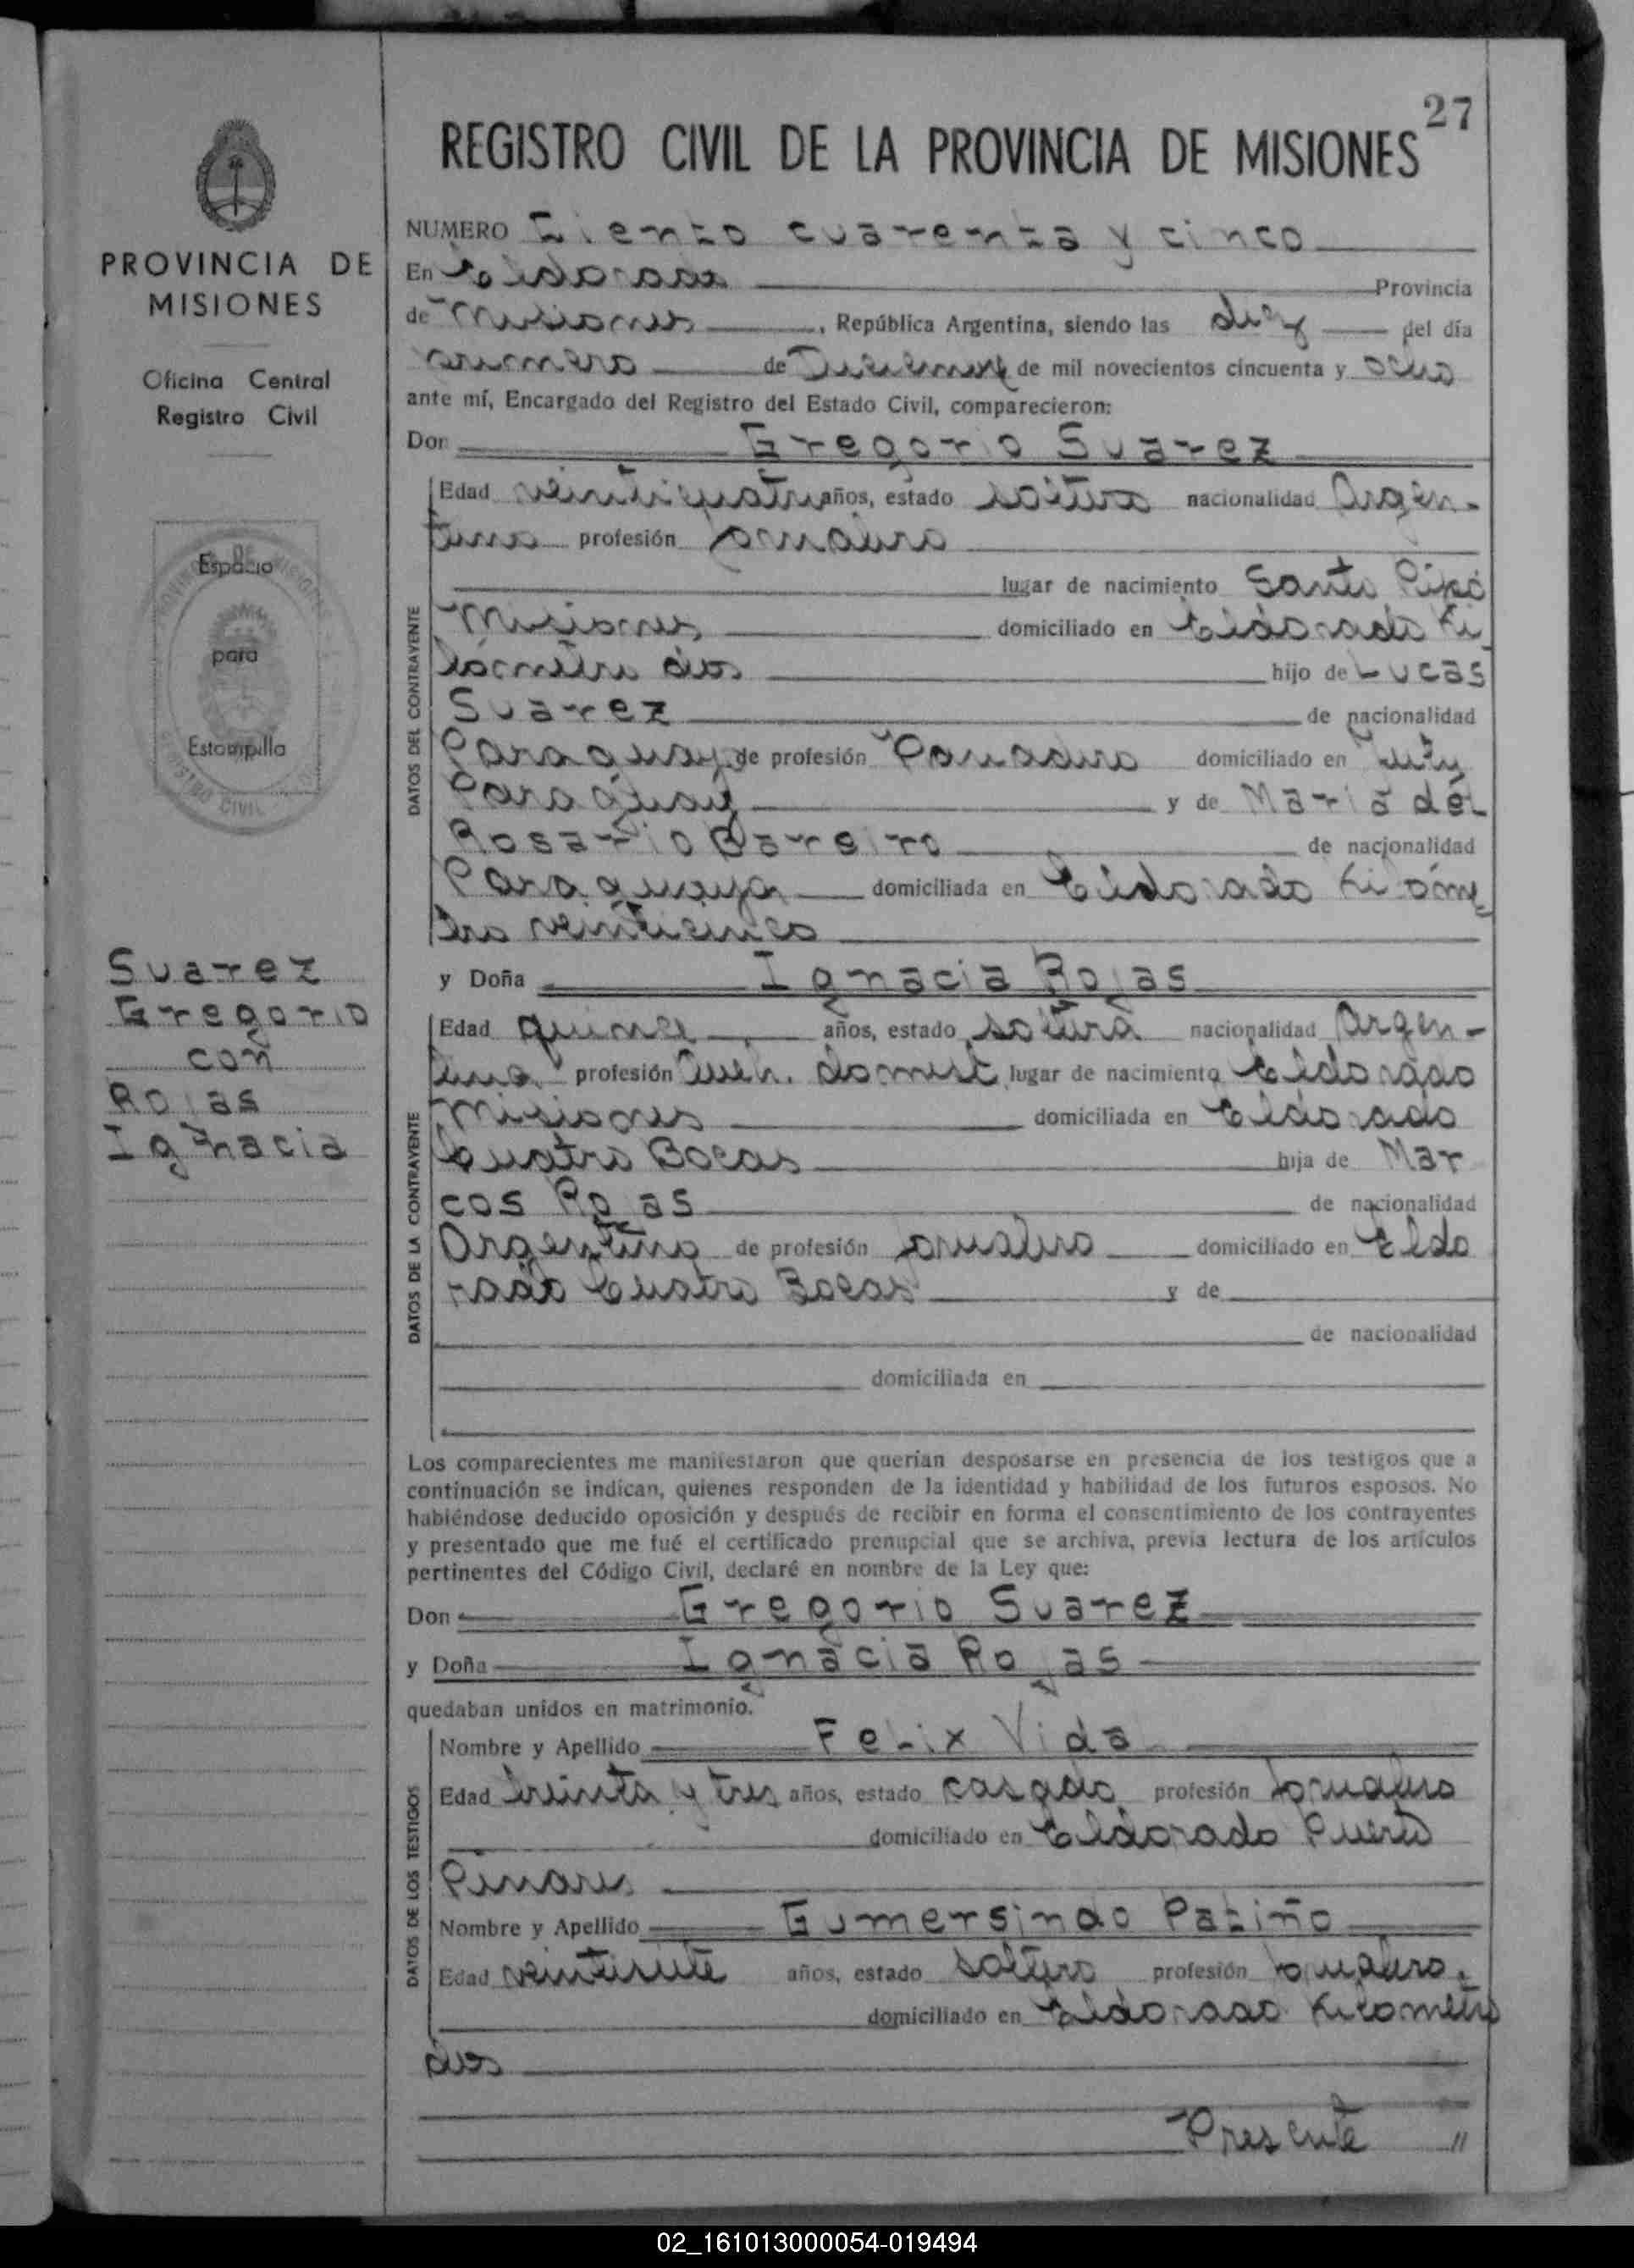 27
REGISTRO CIVIL DE LA PROVINCIA DE MISIONES
PROVINCIA DE
MISIONES
Oficina Central
Registro Civil
Espacio
para
Estampilla
Suarez
Gregorio
con
Rojas
Ignacia
NUMERO Ciento cuarenta y cinco
En Eldorado Provincia
de Misiones, República Argentina, siendo las diez del día
primero de Diciembre de mil novecientos cincuenta y ocho
ante mí, Encargado del Registro del Estado Civil, comparecieron:
Don Gregorio Suarez
DATOS DEL CONTRAYENTE
Edad veinticuatro años, estado soltero nacionalidad Argen-
tino profesión jornalero
lugar de nacimiento Santo Pipó
Misiones domiciliado en Eldorado Ki
lómetro dos hijo de Lucas
Suarez de nacionalidad
Paraguay de profesión Panadero domiciliado en
Paraguay y de Maria del
Rosario Bareiro de nacionalidad
Paraguaya domiciliada en Eldorado Kilóme-
tro veinticinco
y Doña Ignacia Rojas
DATOS DE LA CONTRAYENTE
Edad quince años, estado soltera nacionalidad Argen-
tina profesión domést lugar de nacimiento Eldorado
Misiones domiciliada en Eldorado
Cuatro Bocas hija de Mar
cos Rojas de nacionalidad
Argentino de profesión jornalero domiciliado en Eldo
rado Cuatro Bocas y de
de nacionalidad
domiciliada en
Los comparecientes me manifestaron que querían desposarse en presencia de los testigos que a
continuación se indican, quienes responden de la identidad y habilidad de los futuros esposos. No
habiéndose deducido oposición y después de recibir en forma el consentimiento de los contrayentes
y presentado que me fué el certificado prenupcial que se archiva, previa lectura de los artículos
pertinentes del Código Civil, declaré en nombre de la Ley que:
Don Gregorio Suarez
y Doña Ignacia Rojas
quedaban unidos en matrimonio.
DATOS DE LOS TESTIGOS
Nombre y Apellido Felix Vida
Edad treinta y tres años, estado casado profesión Jornalero
domiciliado en Eldorado Puerto
Pinares
Nombre y Apellido Gumersindo Patiño
Edad veintisiete años, estado soltero profesión Jornalero.
domiciliado en Eldorado Kilometro
dos
Presente //
02_161013000054-019494